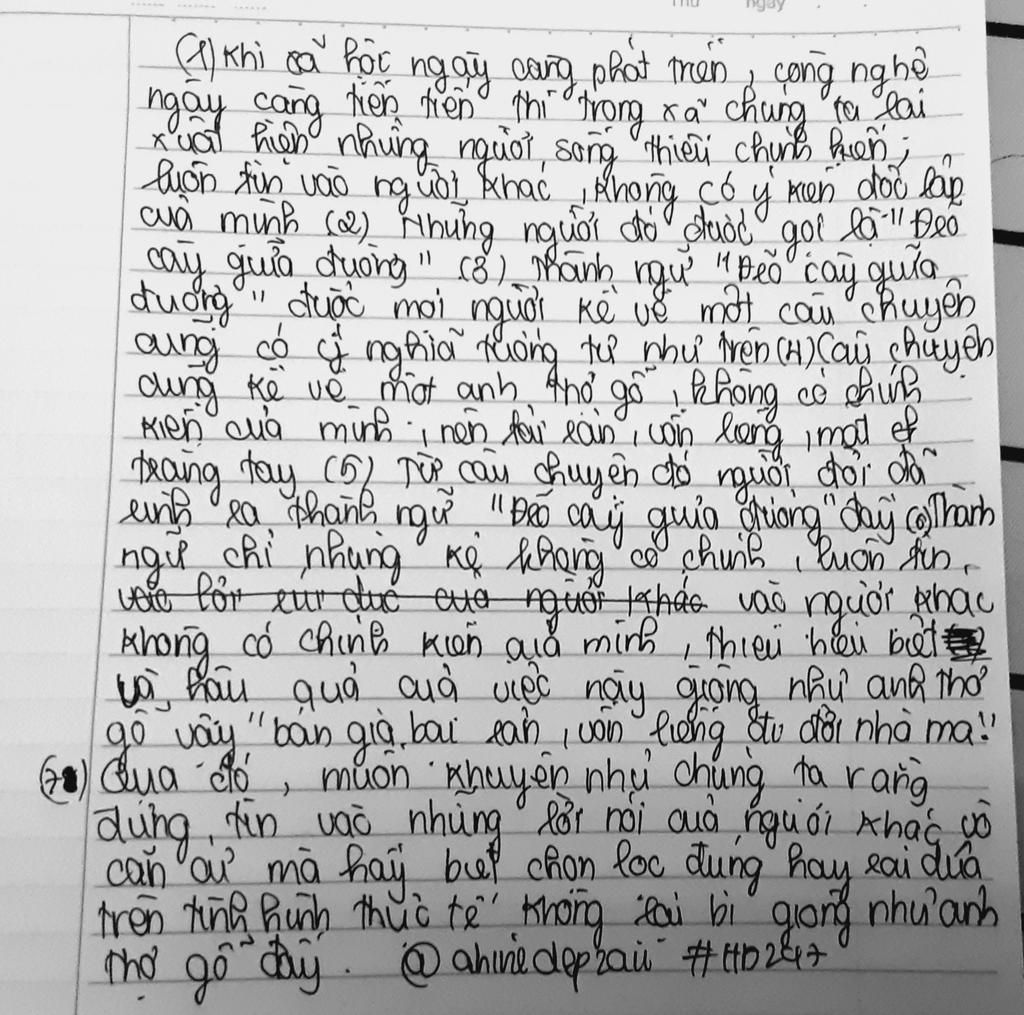 Thứ ngày
(1) Khi xã hội ngày càng phát triển, công nghệ
ngày càng tiên tiến thì trong xã chúng ta lại
xuất hiện những người sống thiếu chính kiến;
luôn tin vào người khác, không có ý kiến độc lập
của mình (2) Những người đó được gọi là "Đẽo
cày giữa đường" (3) Thành ngữ "Đẽo cày giữa
đường" được mọi người kể về một câu chuyện
cũng có ý nghĩa tương tự như trên (4) Câu chuyện
cũng kể về một anh thợ gỗ, không có chính
kiến của mình, nên tài sản, vốn liếng, mất
trắng tay (5) Từ câu chuyện đó người đời đã
sinh ra thành ngữ "Đẽo cày giữa đường" đấy (6) Thành
ngữ chỉ những kẻ không có chính, luôn tin
vào người khác
không có chính kiến của mình, thiếu hiểu biết
và hậu quả của việc này giống như anh thợ
gỗ vậy "bán gia bại sản, vốn liếng đi đời nhà ma"
(7) Qua đó, muốn khuyên nhủ chúng ta rằng
đừng tin vào những lời nói của người khác vô
căn cứ mà hãy biết chọn lọc đúng hay sai dựa
trên tình hình thực tế không lại bị giống như anh
thợ gỗ đấy. @ahinedepzaii #HD247